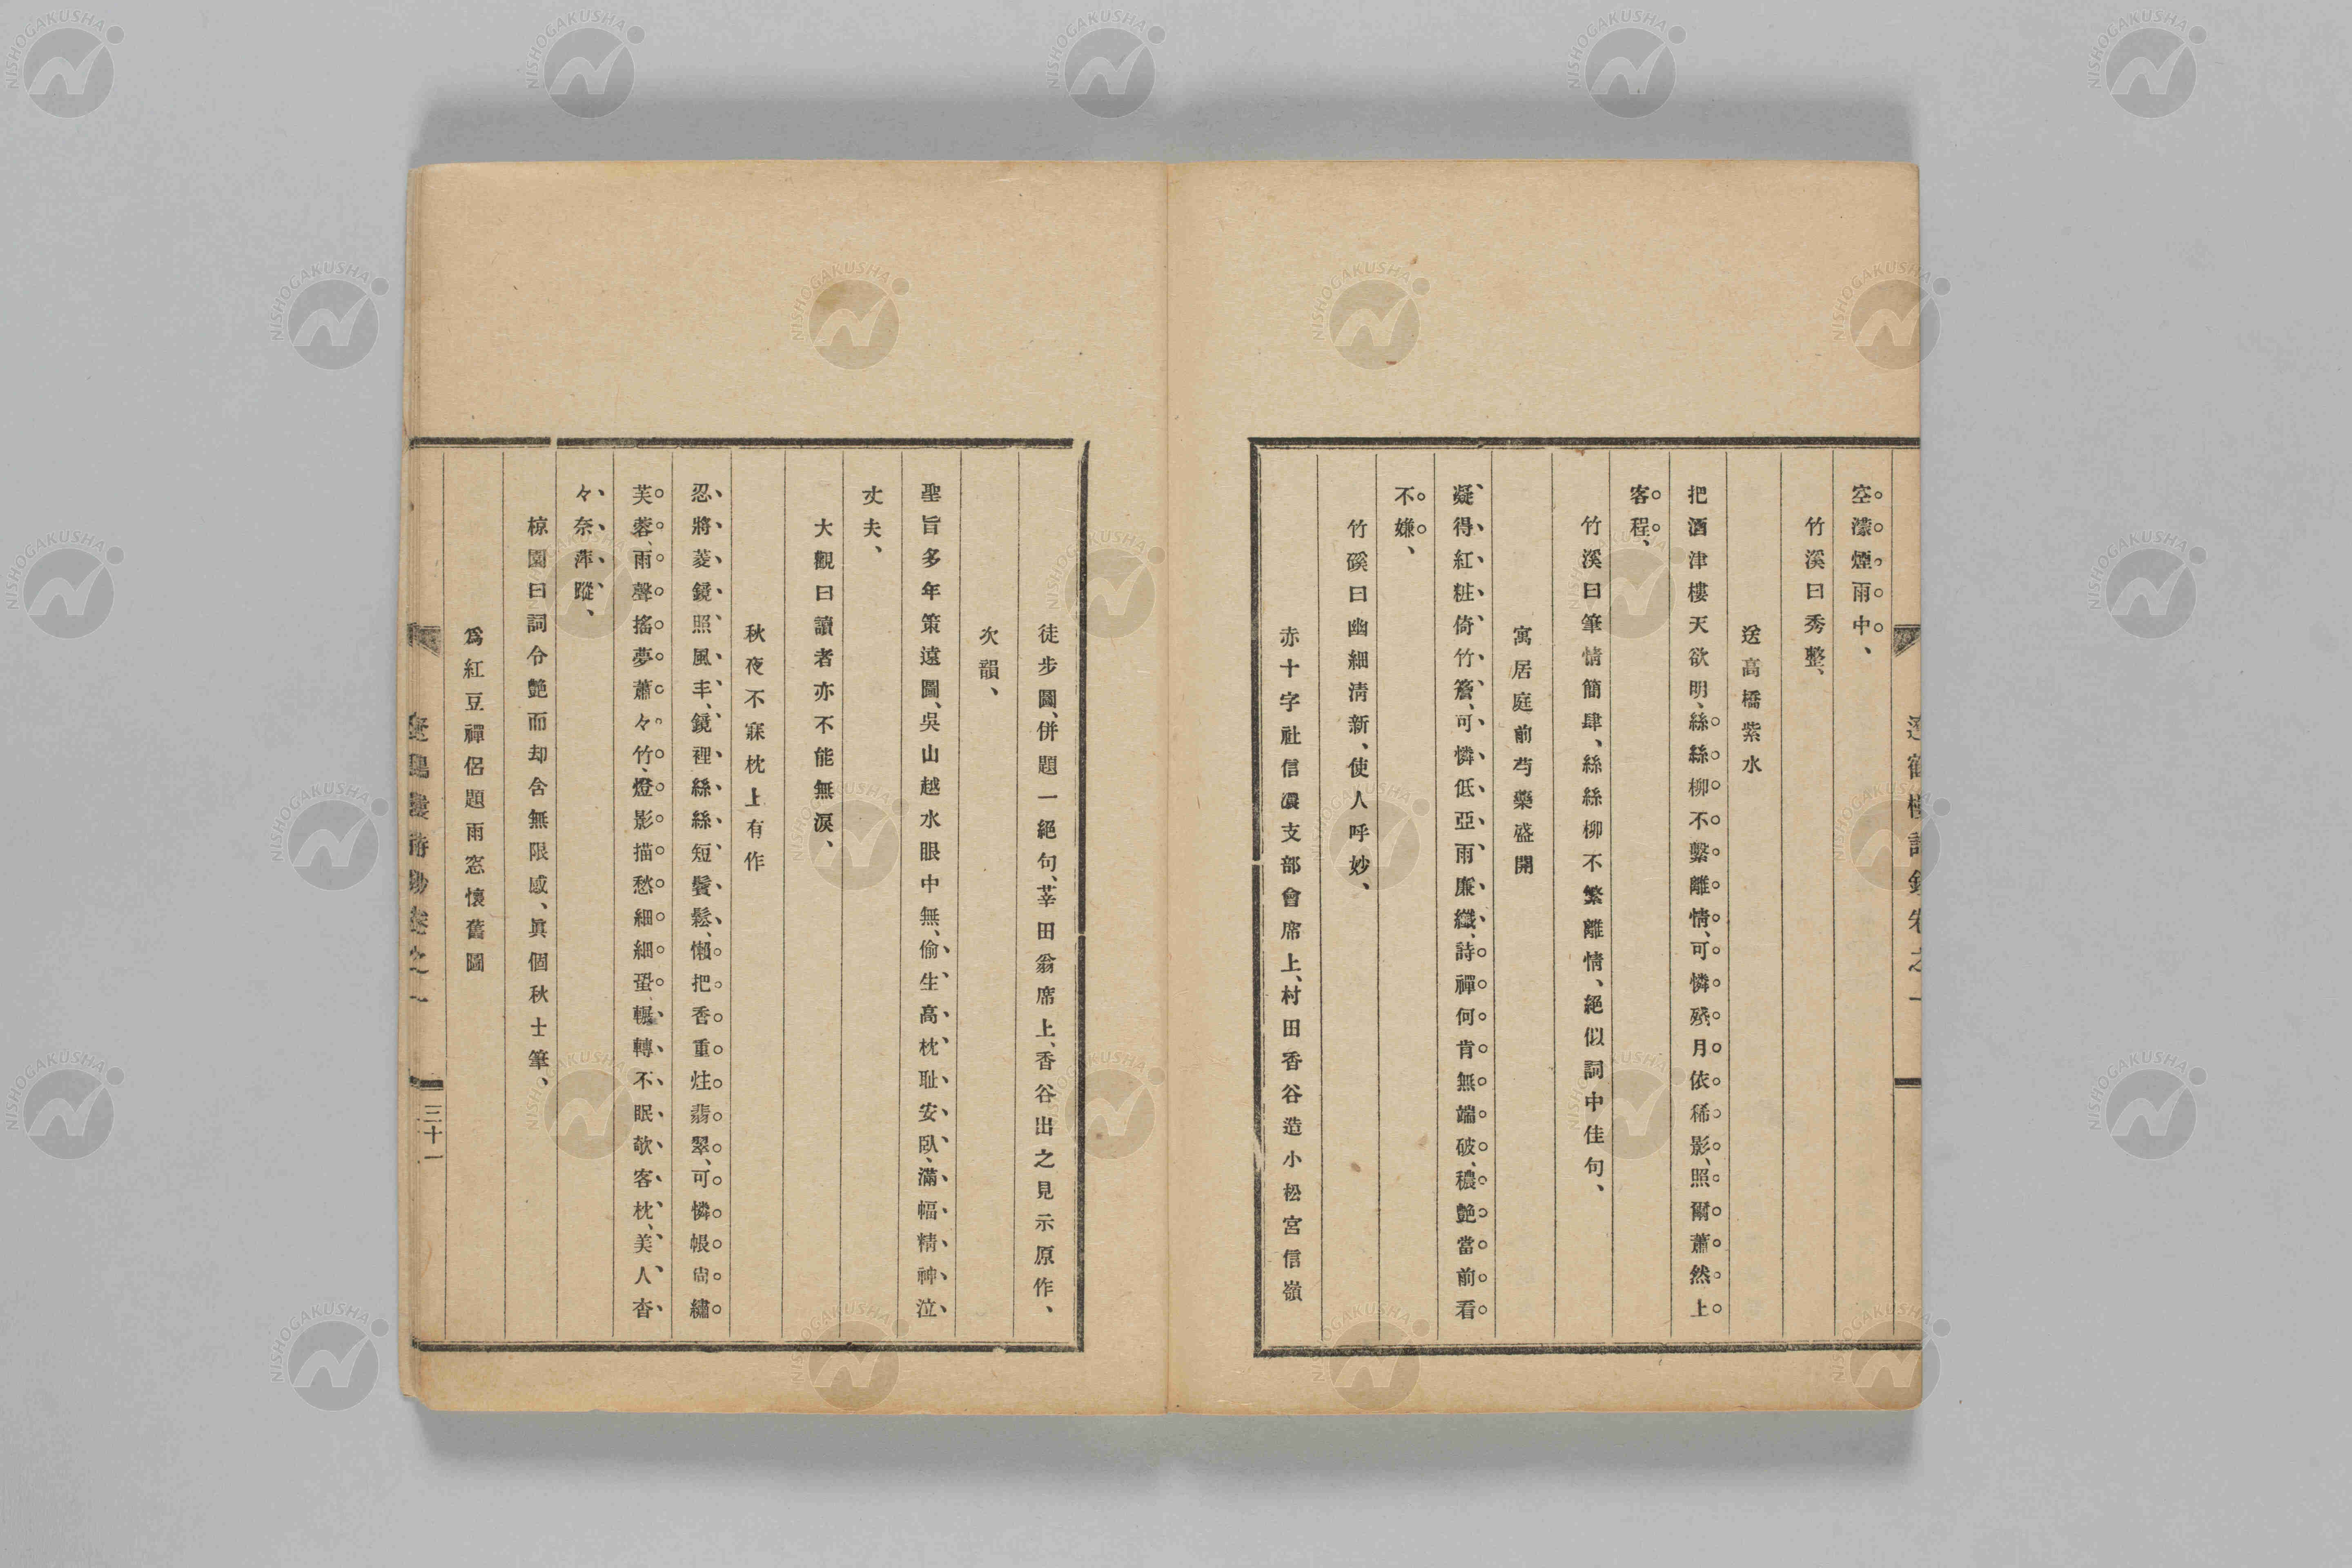 空濛煙雨中、
竹溪曰秀整、
送高橋紫水
把酒津樓天欲明、絲絲柳不繫離情、可憐殘月依稀影、照爾蕭然上
客程、
竹溪曰筆情簡肆、絲絲柳不繁離情、絕似詞中佳句、
寓居庭前芍藥盛開
凝得紅粧倚竹簷、可憐低亞雨廉纖、詩禪何肯無端破、穠艶當前看
不嫌、
竹磎曰幽細淸新、使人呼妙、
赤十字社信濃支部會席上、村田香谷造小松宮信嶺
徒步圖、併題一絕句、莘田翁席上、香谷出之見示原作、
次韻、
聖旨多年策遠圖、吳山越水眼中無、偷生高枕耻安臥、滿幅精神泣
丈夫、
大觀曰讀者亦不能無淚、
秋夜不寐枕上有作
忍將菱鏡照風丰、鏡裡絲絲短鬢鬆、懶把香重炷翡翠、可憐帳尙繡
芙蓉、雨聲搖夢蕭々竹、燈影描愁細細蛩、輾轉不眠欹客枕、美人杳
々奈萍蹤、
椋園曰詞令艶而却含無限感、眞個秋士筆、
爲紅豆禪侶題雨窓懷舊圖
三十一
NISHOGAKUSHA